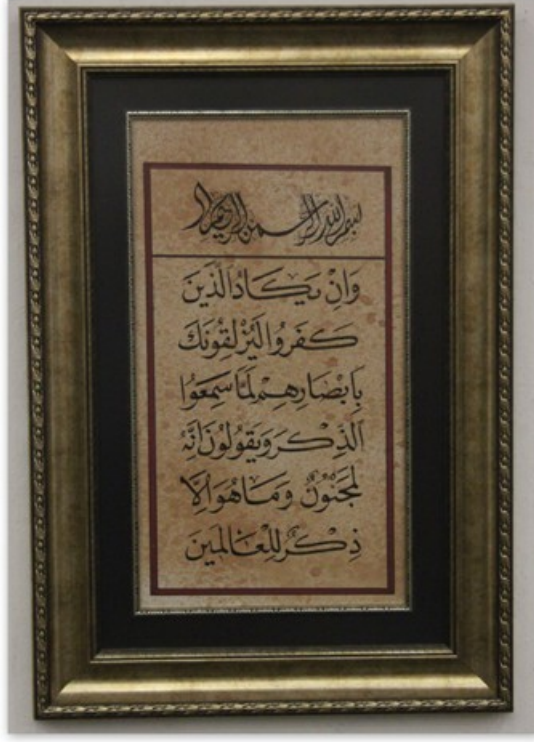 بسم الله الرحمن الرحيم
وَاِنْ يَكَادُ الَّذينَ
كَفَرُوا لَيُزْلِقُونَكَ
بِاَبْصَارِهِمْ لَمَّا سَمِعُوا
الذِّكْرَ وَيَقُولُونَ اِنَّهُ
لَمَجْنُونٌ وَمَا هُوَ اِلَّا
ذِكْرٌ لِلْعَالَمينَ